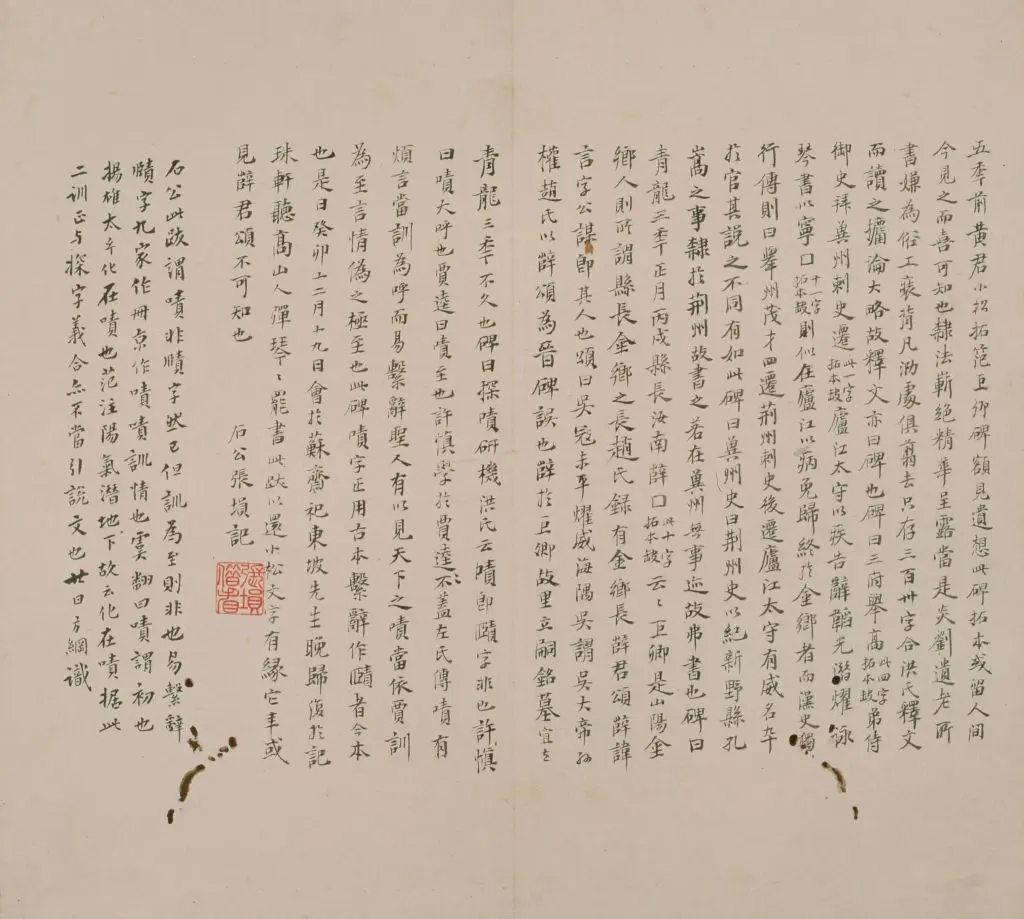 五季前黃君小松拓范巨卿碑額見遺想此碑拓本或留人間
今見之而喜可知也隸法嶄絕精華呈露當是炎劉遺老所
書嫌為俗工裹背凡泐處俱翦去只存三百卅字合洪氏釋文
而讀之攟淪大略故釋文亦曰碑也碑曰三府舉高此四字拓本缺弟侍
御史拜兾州刺史遷此一字拓本缺廬江太守以疾告辭韜光潛耀詠
琴書以寧口十一字拓本缺則似在廬江以病免歸終於金鄉者而漢史獨
行傳則曰舉州茂才四遷荊州刺史後遷廬江太守有威名卒
於官其說之不同有如此碑曰兾州史曰荊州史以紀新野縣孔
嵩之事隸於荊州故書之若在兾州無事迹故弗書也碑曰
青龍三季正月丙戌縣長汝南薛口此十字拓本缺云〻巨卿是山陽金
鄉人則所謂縣長金鄉之長趙氏錄有金鄉長薛君頌薛諱
言字公謀即其人也頌曰吳寇未平耀威海隅吳謂吳大帝孫
權趙氏以薛頌為晉碑誤也薛於巨卿故里立嗣銘墓宜在
青龍三季不久也碑曰探嘖研機洪氏云嘖即賾字非也許慎
曰嘖大呼也賈逵曰嘖至也許慎學於賈逵不〻蓋左氏傳嘖有
煩言當訓為呼而易繫辭聖人有以見天下之嘖當依賈訓
為至言情偽之極至也此碑嘖字正用古本繫辭作賾者今本
也是日癸卯十二月十九日會於蘇齋祀東坡先生晚歸復於記
珠軒聽高山人彈琴〻罷書此跋以還小松文字有緣它年或
見薛君頌不可知也
石公張塤記
張塤
石公此跋謂嘖非賾字然已但訓為至則非也易繫辭
賾字九家作冊京作嘖嘖訓情也虞翻曰嘖謂初也
揚雄太玄化在嘖也范注陽氣潛地下故云化在嘖据此
二訓正与探字義合亦不當引說文也廿日方綱識